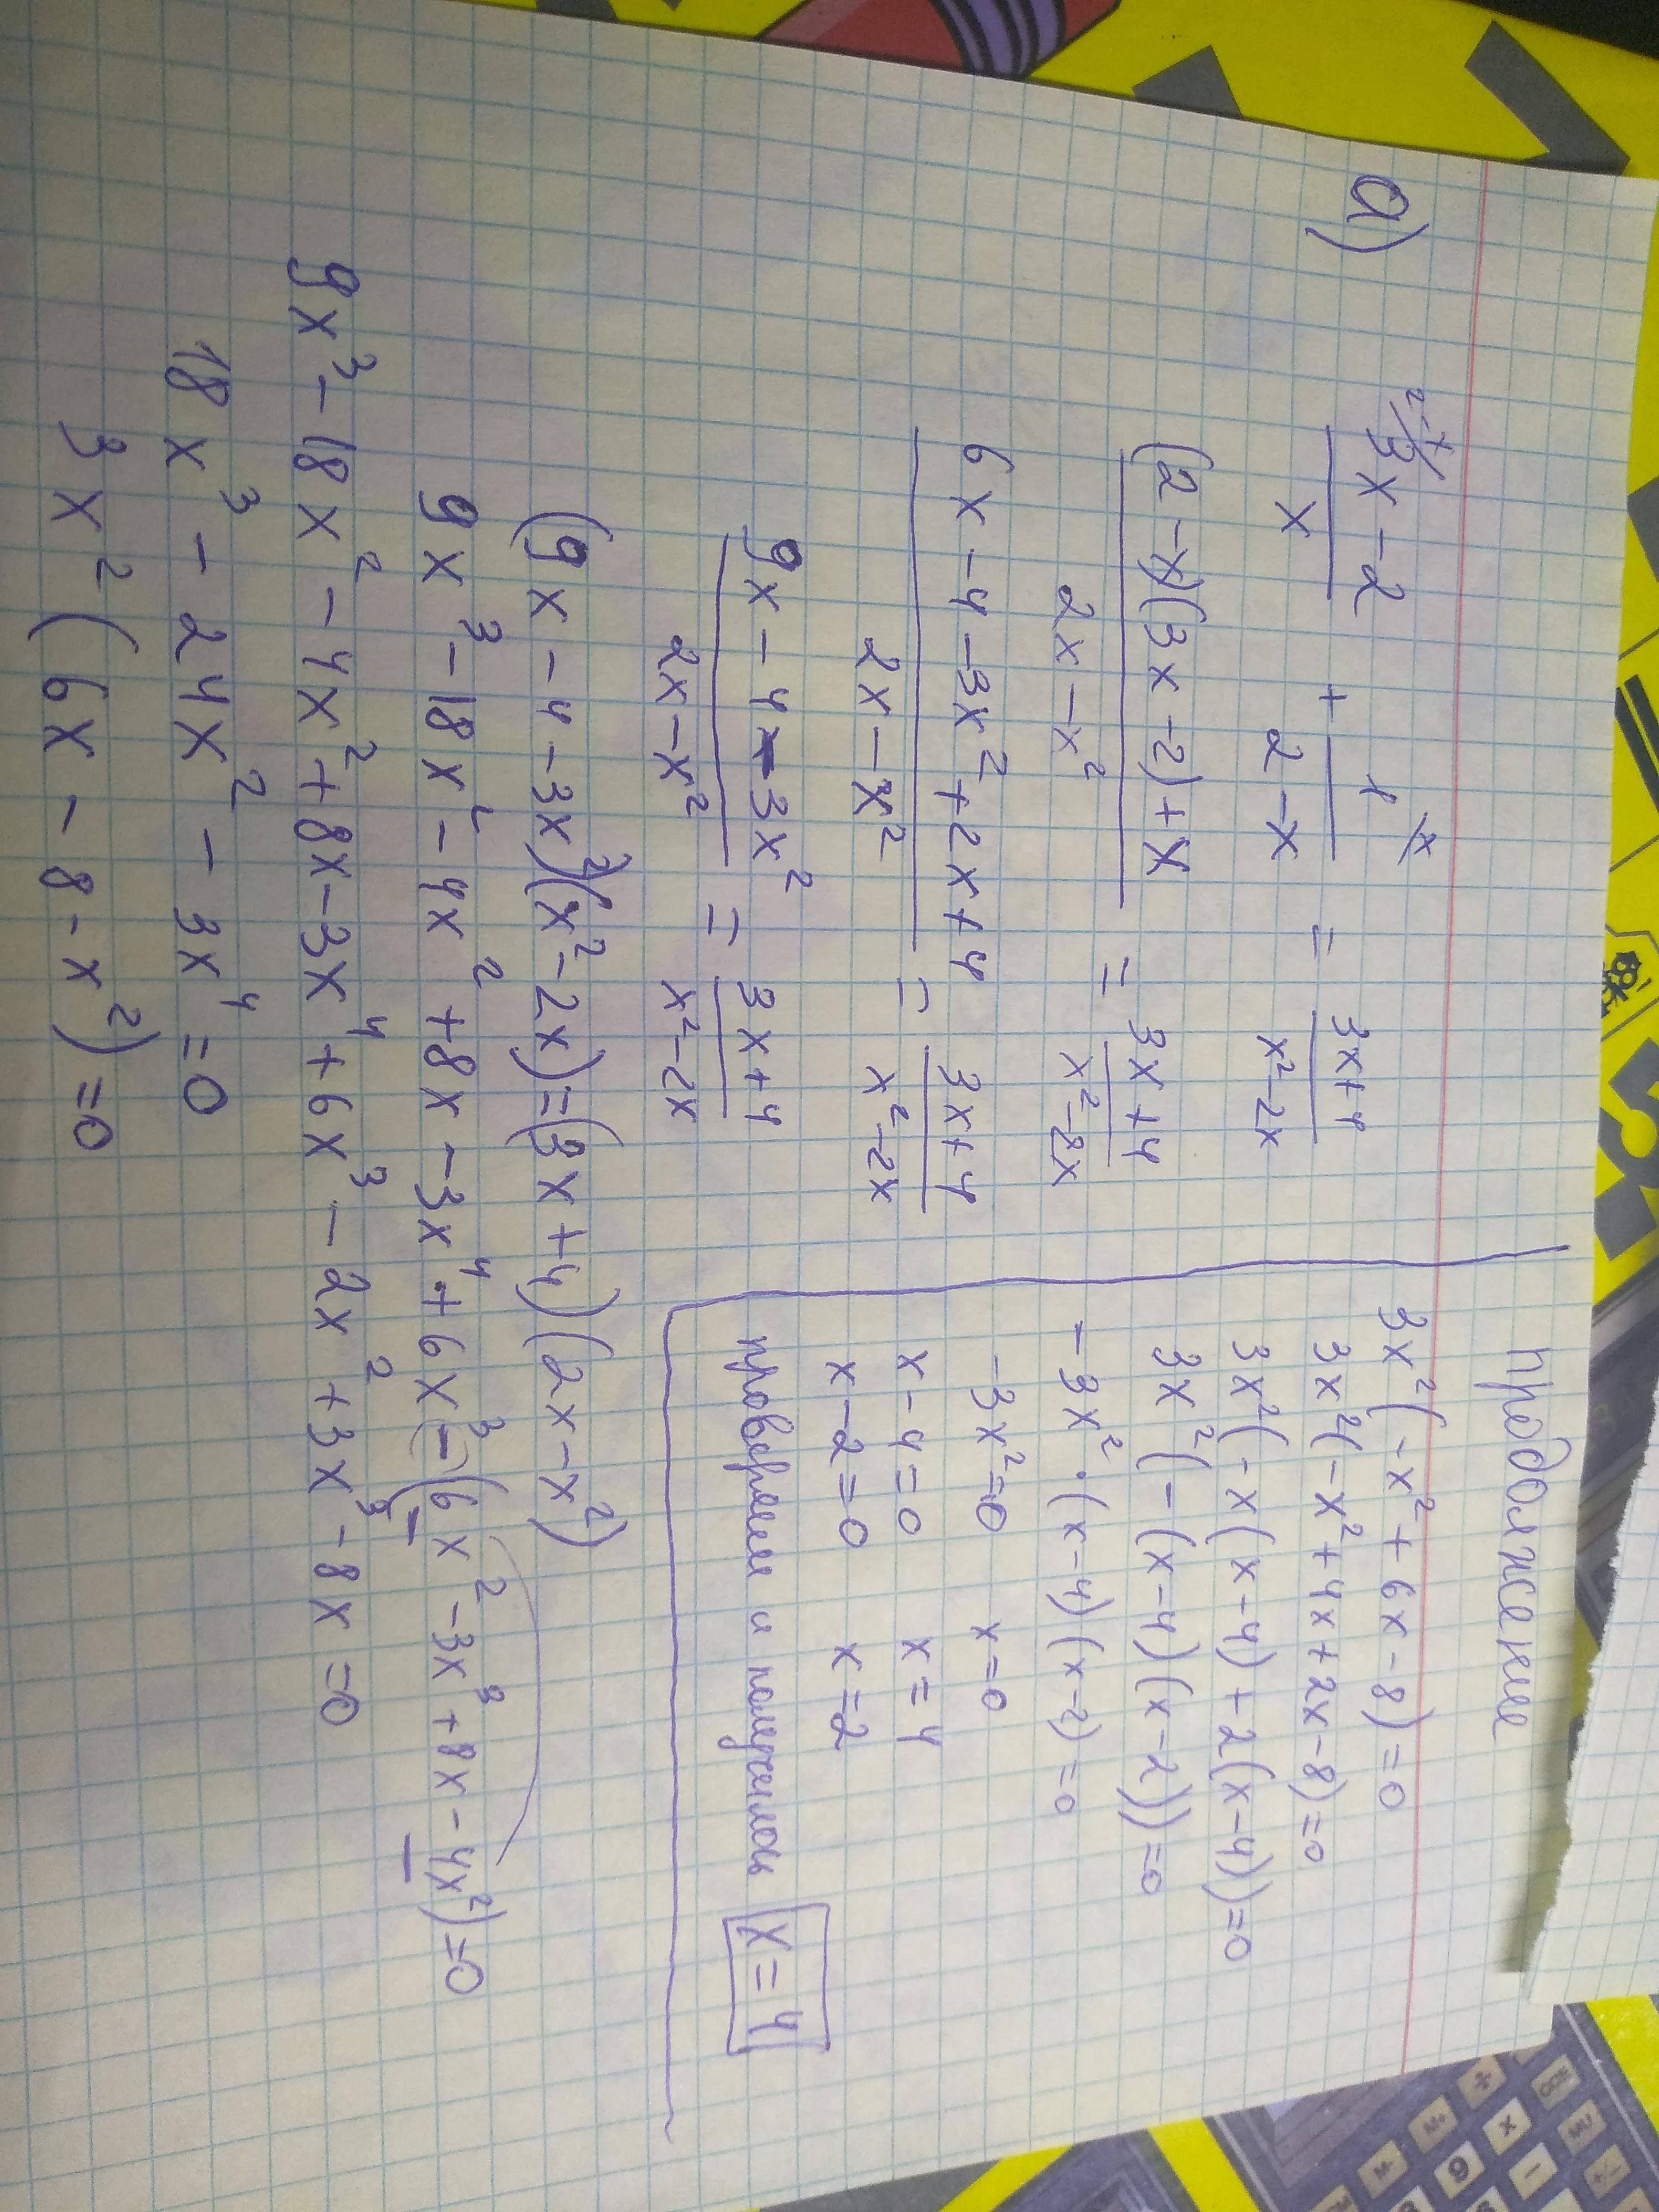 а)
2-x/ 3x-2 / x + 1 /x / 2-x = 3x+4 / x²-2x
(2-x)(3x-2)+x / 2x-x² = 3x+4 / x²-2x
6x-4-3x²+2x+4 / 2x-x² = 3x+4 / x²-2x
9x-4-3x² / 2x-x² = 3x+4 / x²-2x
(9x-4-3x²)(x²-2x)=(3x+4)(2x-x²)
9x³-18x²-4x²+8x-3x⁴+6x³-(6x²-3x³+8x-4x²)=0
9x³-18x²-4x²+8x-3x⁴+6x³-2x²+3x³-8x=0
18x³-24x²-3x⁴=0
3x²(6x-8-x²)=0
продолжение
3x²(-x²+6x-8)=0
3x²(-x²+4x+2x-8)=0
3x²(-x(x-4)+2(x-4))=0
3x²(-(x-4)(x-2))=0
-3x²·(x-4)(x-2)=0
-3x²=0 x=0
x-4=0 x=4
x-2=0 x=2
проверяем и получилось x=4